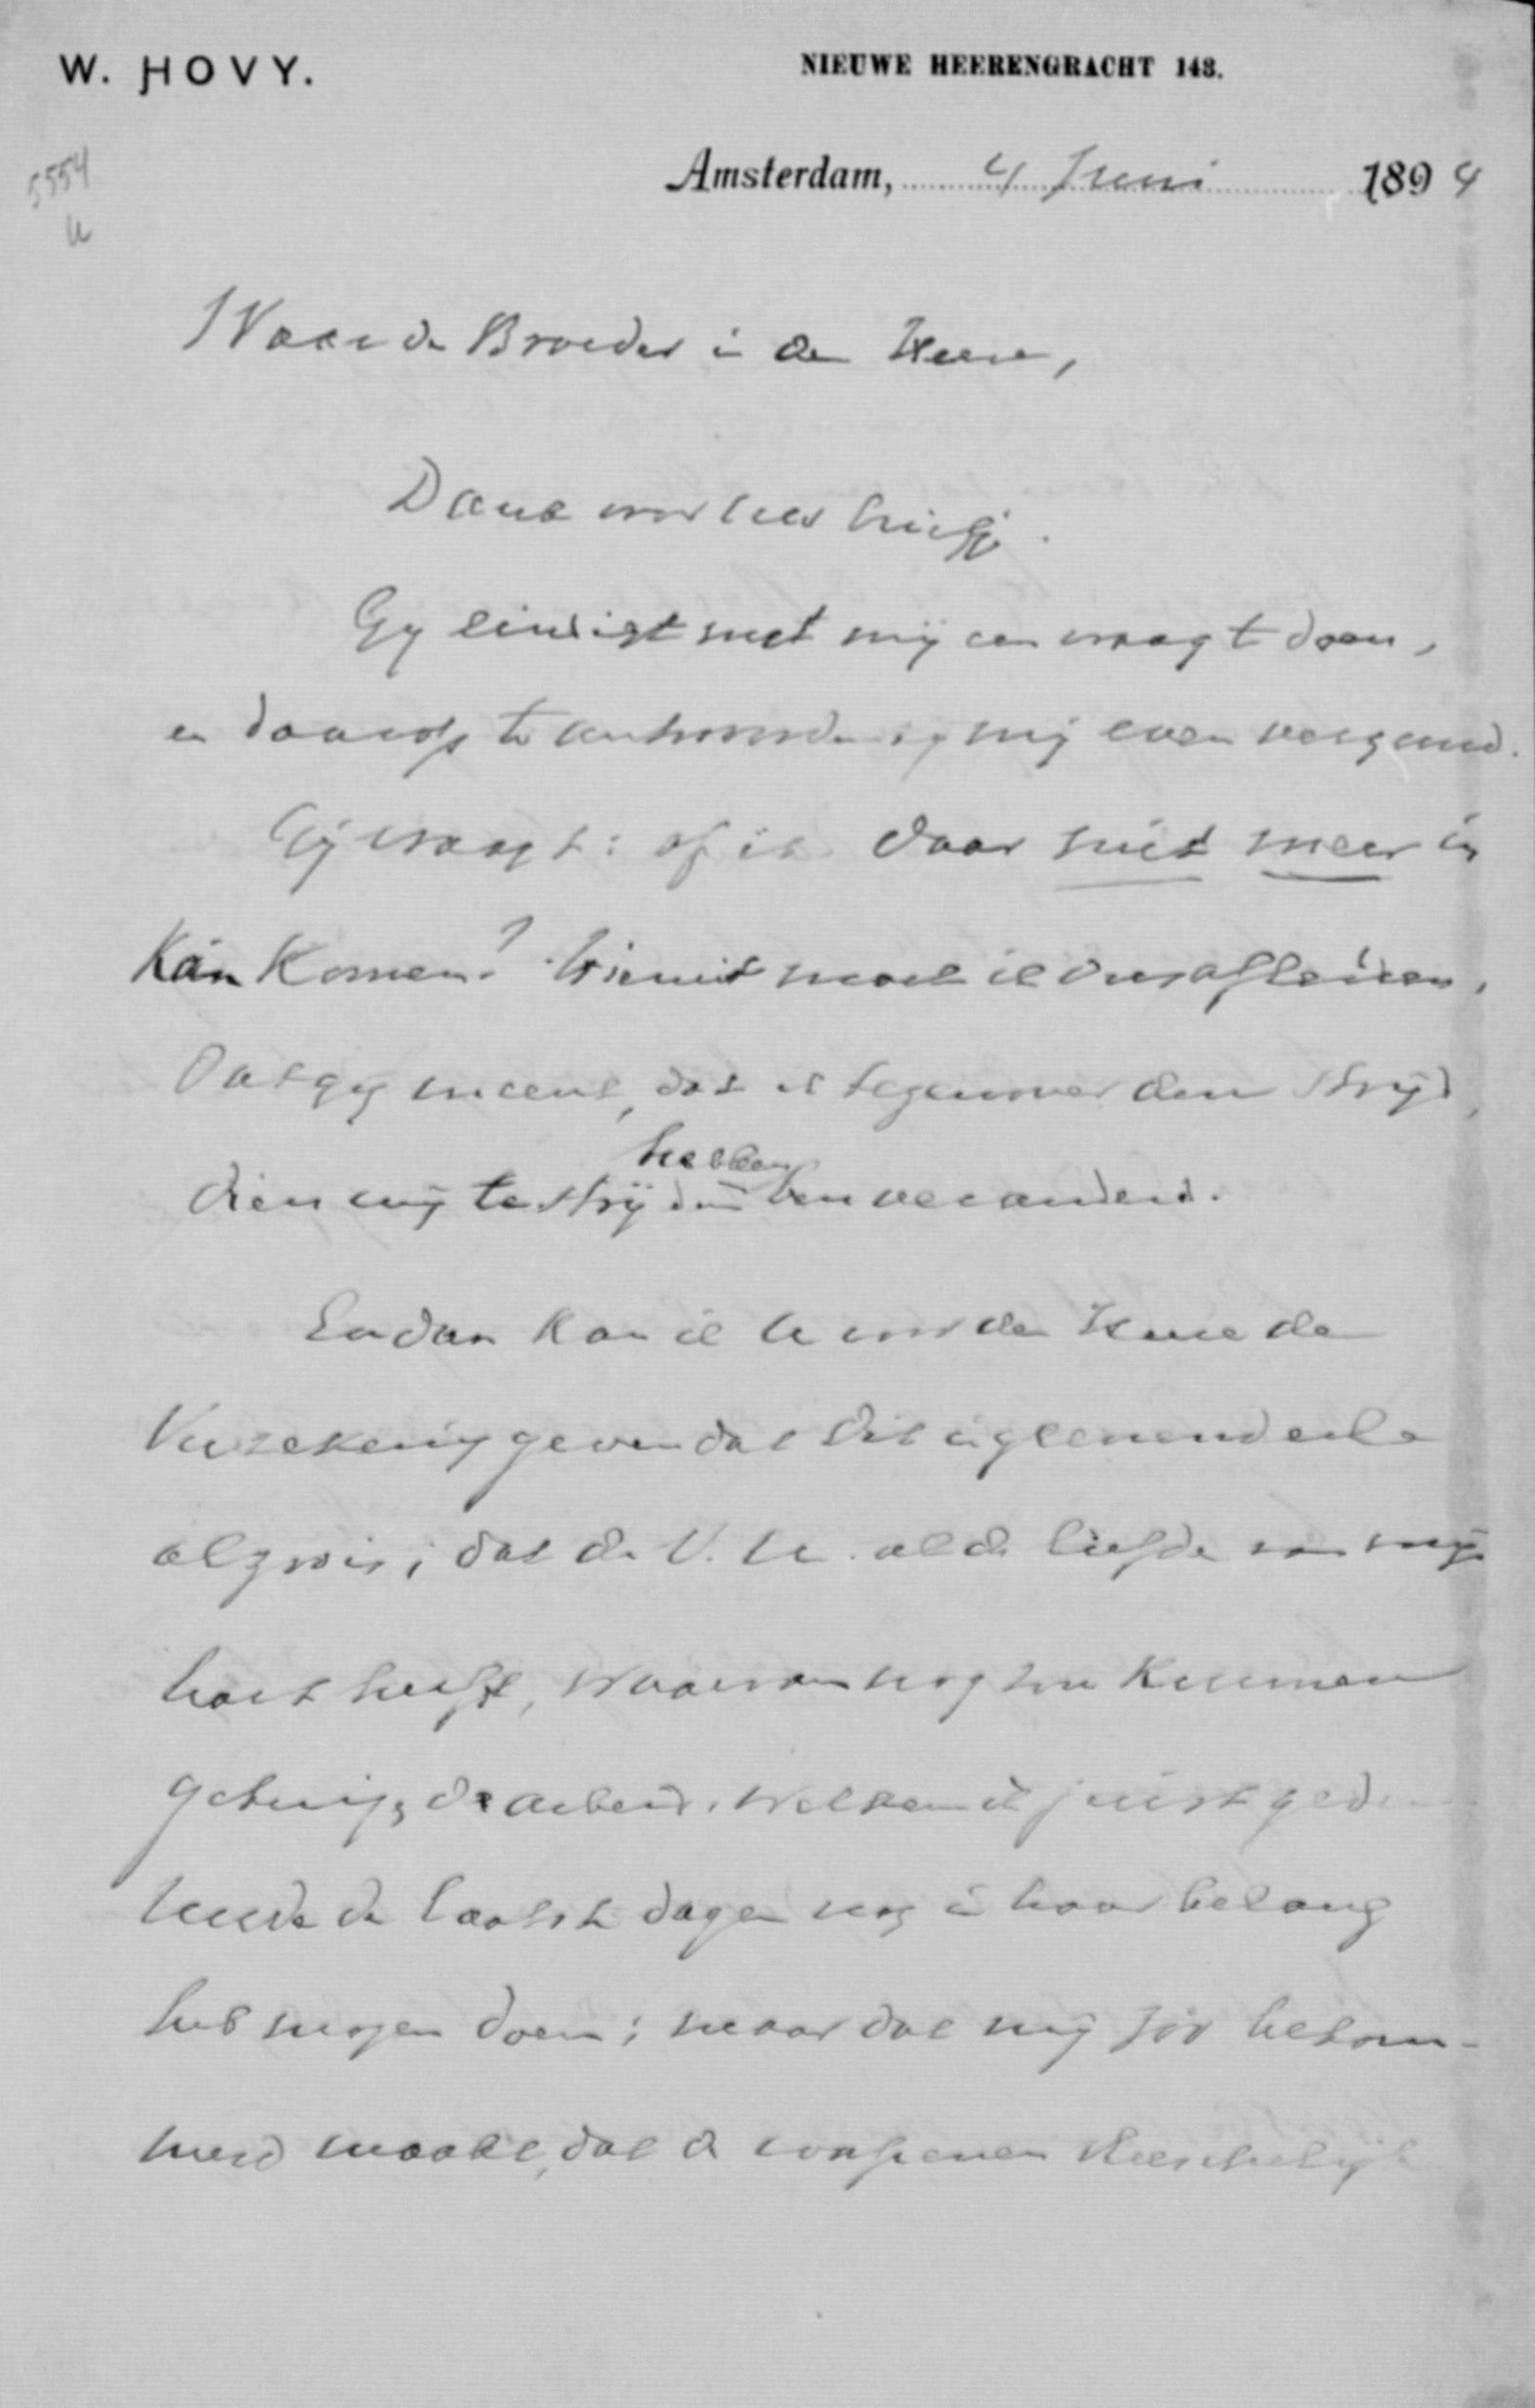 W. HOVY.
NIEUWE HEERENGRACHT 143.
5554
Amsterdam, 4 Juni 1894
Waarde Broeder in den Heere,
Dank voor uw briefje.
Gy eindigt met mij een vraag te doen,
en daarop te antwoorden zij mij even vergund.
Gij vraagt: of ik daar niet meer in
kán komen? Hieruit moet ik dus afleiden,
Dat gij meent, dat ik tegenover den strijd,
dien wij te strijden hebben ben veranderd.
En dan kan ik U voor den Heere de
Verzekering geven dat dit is geenendeele
alzoo is; dat de V. U. al de liefde van mijn
hart heeft, waarvan nog zou kunnen
getuigen de arbeid, welken ik juist gedu
rende de laatste dagen nog in haar belang
heb mogen doen; maar dat mij zóó bekom-
merd maakt, dat de wapenen vleeschelijk